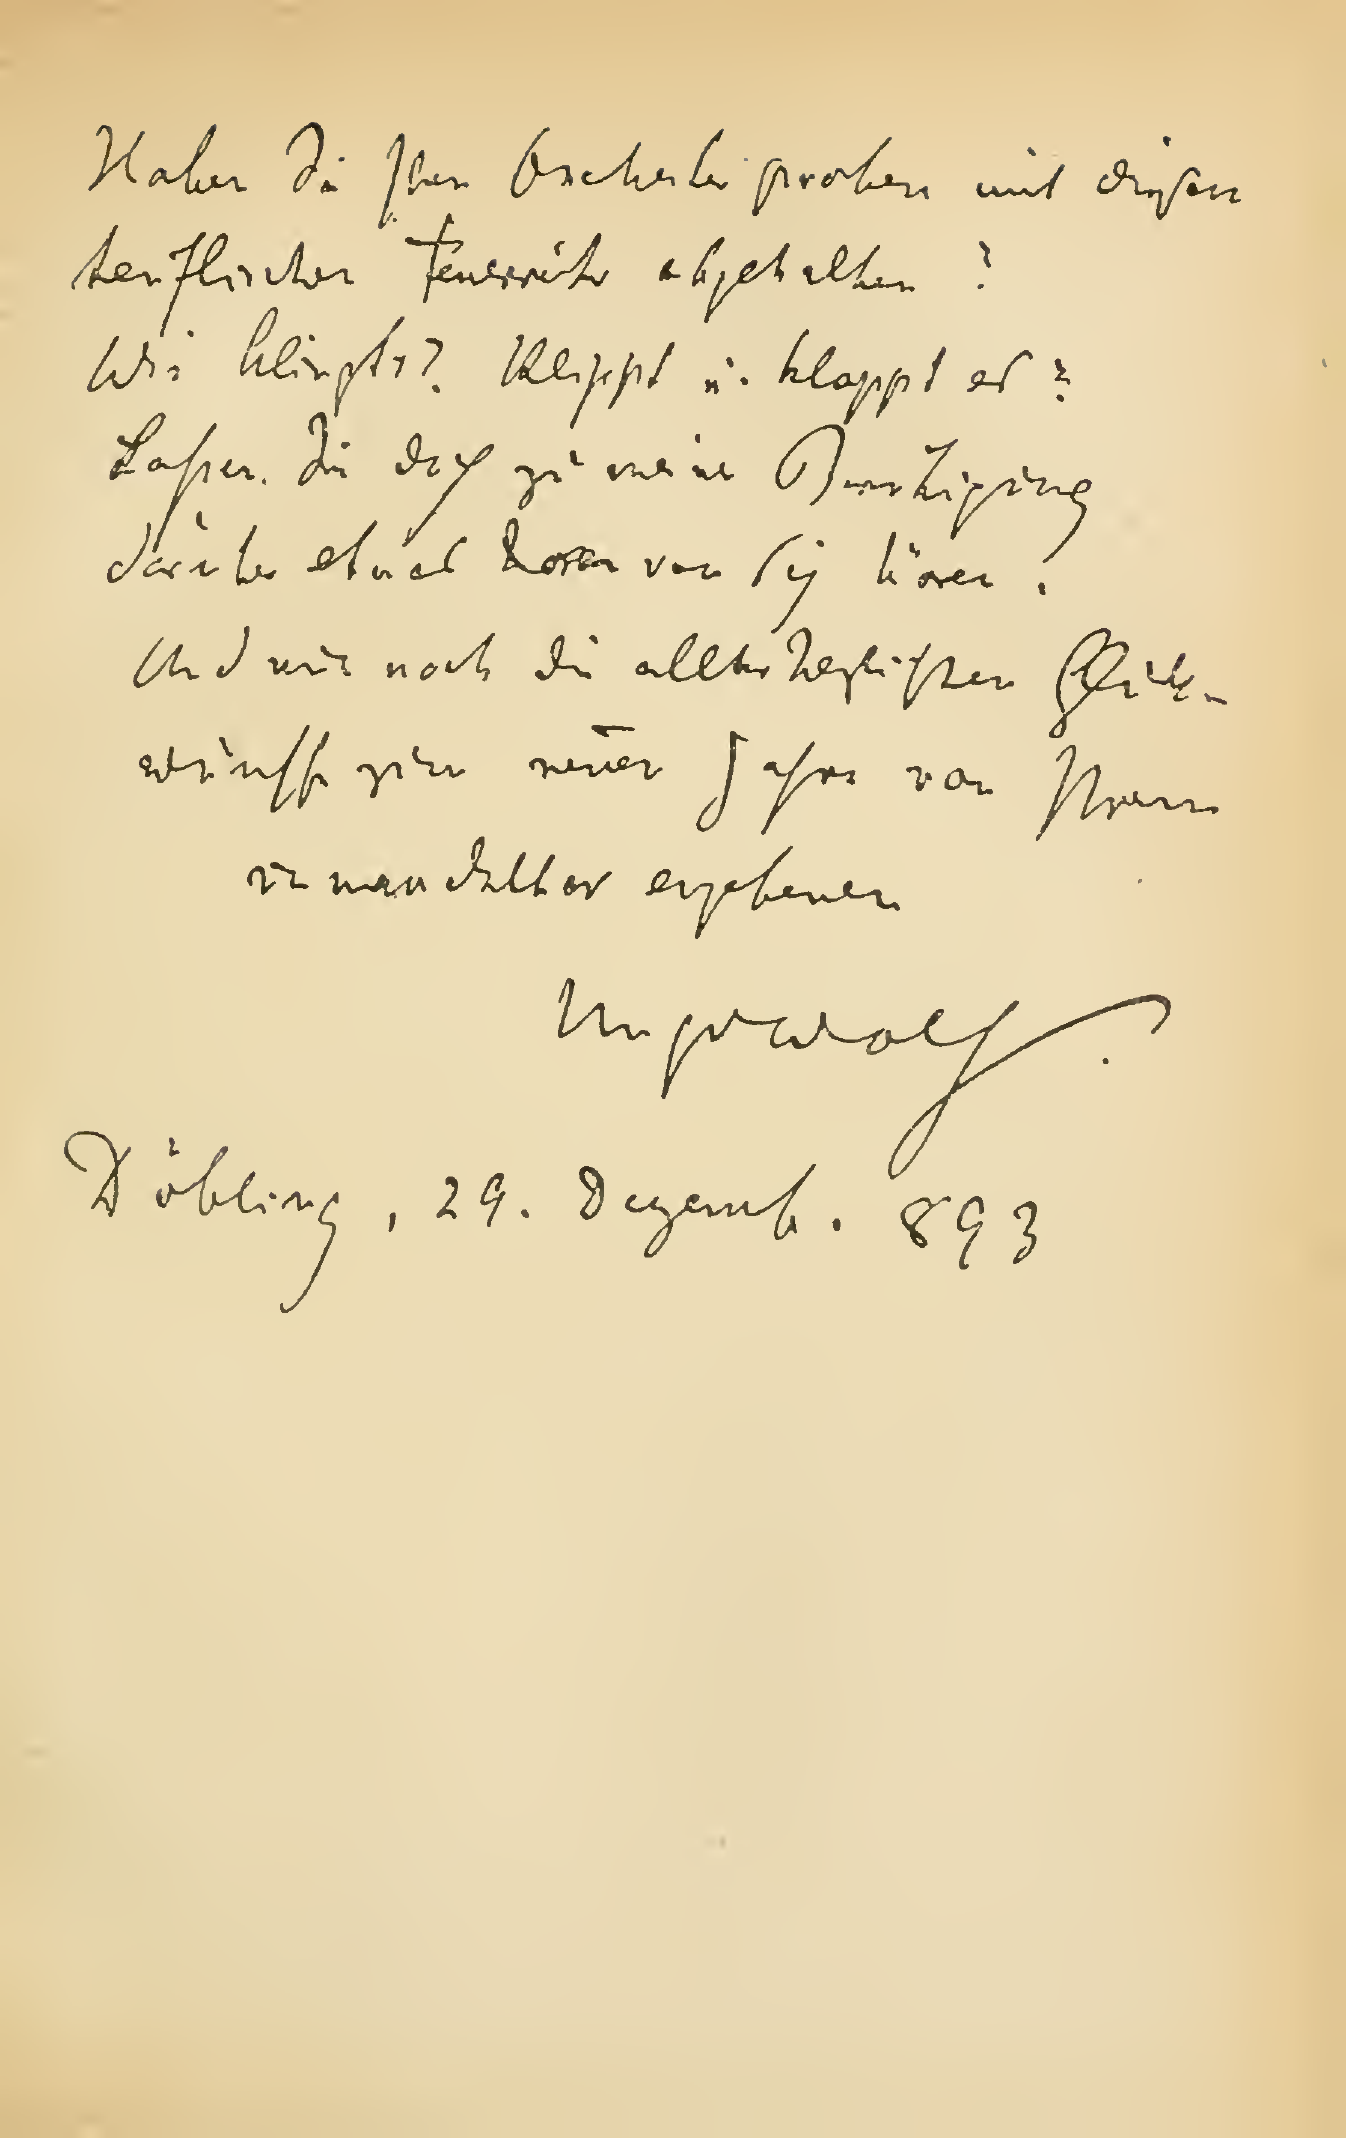 Haben Sie Orchesterproben mit diesem
teuflischen Feuerreiter abgehalten?
Wie klingts? Klippt u. klappt es?
Lassen Sie doch zu meiner Beruhigung
darüber etwas von sich hören.
Und nun noch die allerherzlichsten Glück-
wünsche zum neuen Jahre von Ihrem
unwandelbar ergebenen
Hugo Wolf.
Döbling, 29. Dezemb. 893